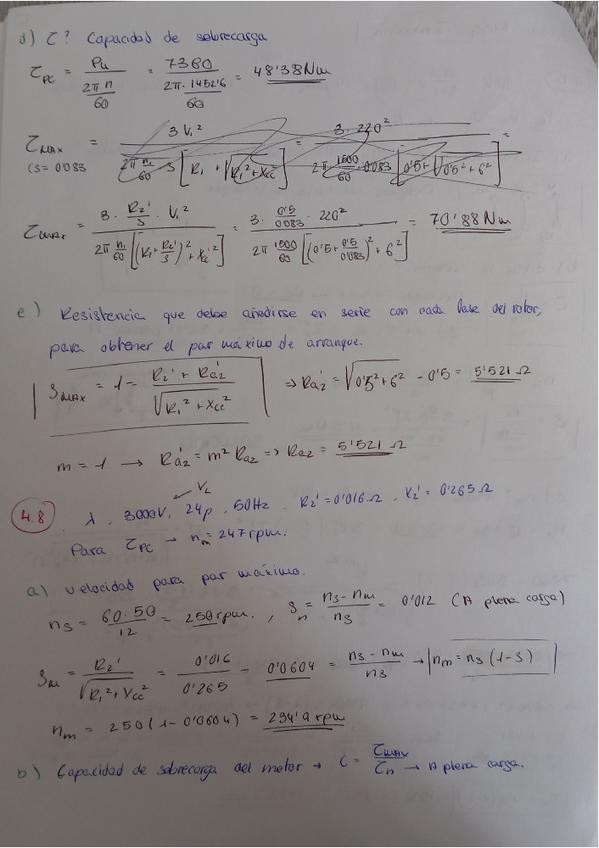 d) τ? Capacidad de sobrecarga
τPC = Pu / (2π n/60) = 7360 / (2π·1452'6/60) = 48'38 Nm
τMAX (s = 0'083) = 3 V1² / (2π n1/60 · s [R1 + √(R1² + Xcc²)]) = 3·220² / (2π 1500/60 · 0'083 [0'5 + √(0'5² + 6²)]) =
τMAX = 3 · R2'/s · V1² / (2π n1/60 [(R1 + R2'/s)² + Xcc²]) = 3 · 0'5/0'083 · 220² / (2π 1500/60 [(0'5 + 0'5/0'083)² + 6²]) = 70'88 Nm
e) Resistencia que debe añadirse en serie con cada fase del rotor,
para obtener el par máximo de arranque.
sMAX = 1 = (R2' + Ra2') / √(R1² + Xcc²) ⇒ Ra2' = √(0'5² + 6²) - 0'5 = 5'521 Ω
m = 1 → Ra2' = m² Ra2 ⇒ Ra2 = 5'521 Ω
VL
4.8 λ . 3000V . 24p . 50Hz . R2' = 0'016 Ω . X2' = 0'265 Ω
Para τPC → nm = 247 rpm.
a) Velocidad para par máximo.
ns = 60·50/12 = 250 rpm. ; sn = (ns - nm)/ns = 0'012 (A plena carga)
sM = R2' / √(R1² + Xcc²) = 0'016/0'265 = 0'0604 = (ns - nm)/ns → nm = ns (1 - s)
nm = 250 (1 - 0'0604) = 234'9 rpm
b) Capacidad de sobrecarga del motor → C = τMAX/τn → A plena carga.